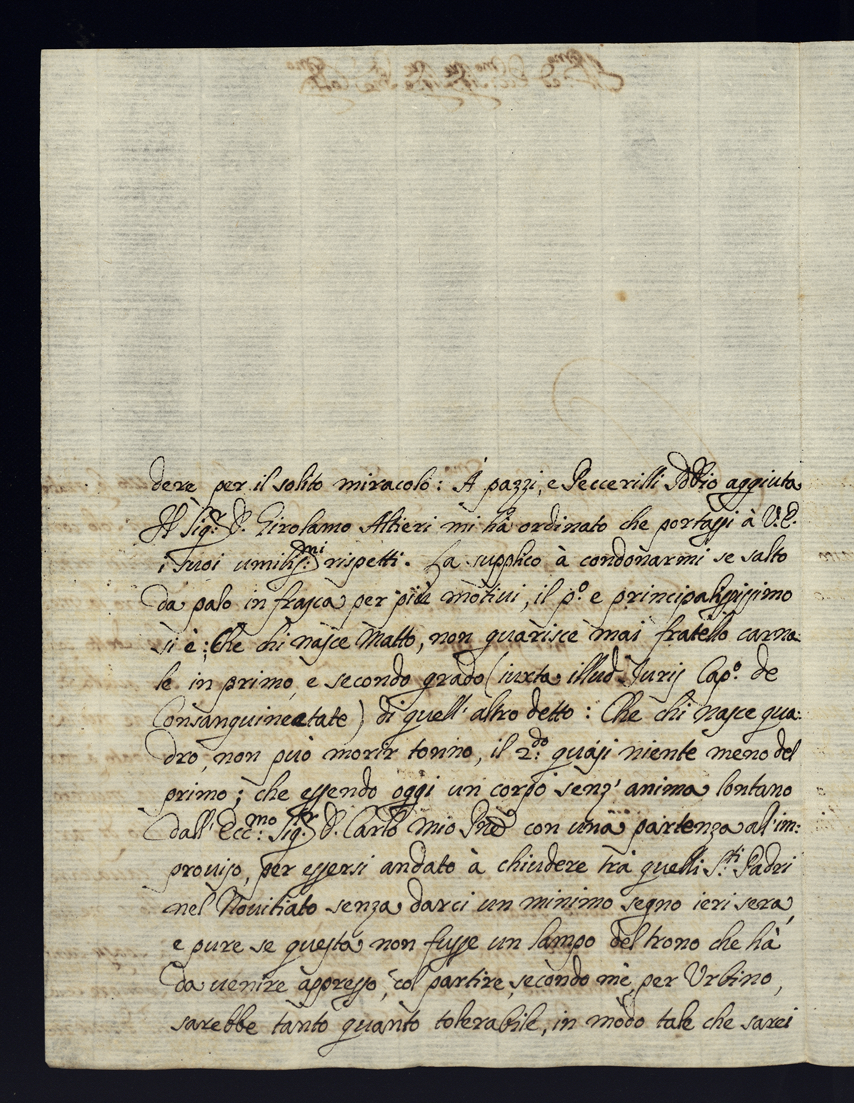 dere per il solito miracolo: A pazzi, e Peccerilli Iddio aggiuta
Il Sig.r D. Girolamo Altieri mi hà ordinato che portassi à V.E.
i suoi umiliss.mi rispetti. La supplico à condonarmi se salto
da palo in frasca per più motiui, il p.o e principalissimo
si è: Che chi nasce Matto, non guarisce mai fratello carna
le in primo, e secondo grado (iuxta illud Iuris Cap.o de
Consanguineetate) di quell' altro detto: Che chi nasce qua:
dro, non può morir tonno, il 2.do quasi niente meno del
primo; che essendo oggi un corpo senz' anima lontano
dall' Ecc.mo Sig.r D. Carlo mio Pne con una partenza al' im:
prouiso, per essersi andato à chiudere trà quelli S.ti Padri
nel Nouitiato senza darci un minimo segno ieri sera,
e pure se questa non fusse un lampo del trono che hà
da uenire appresso, col partire, secondo mè, per Urbino,
sarebbe tanto quanto tolerabile, in modo tale che sarei